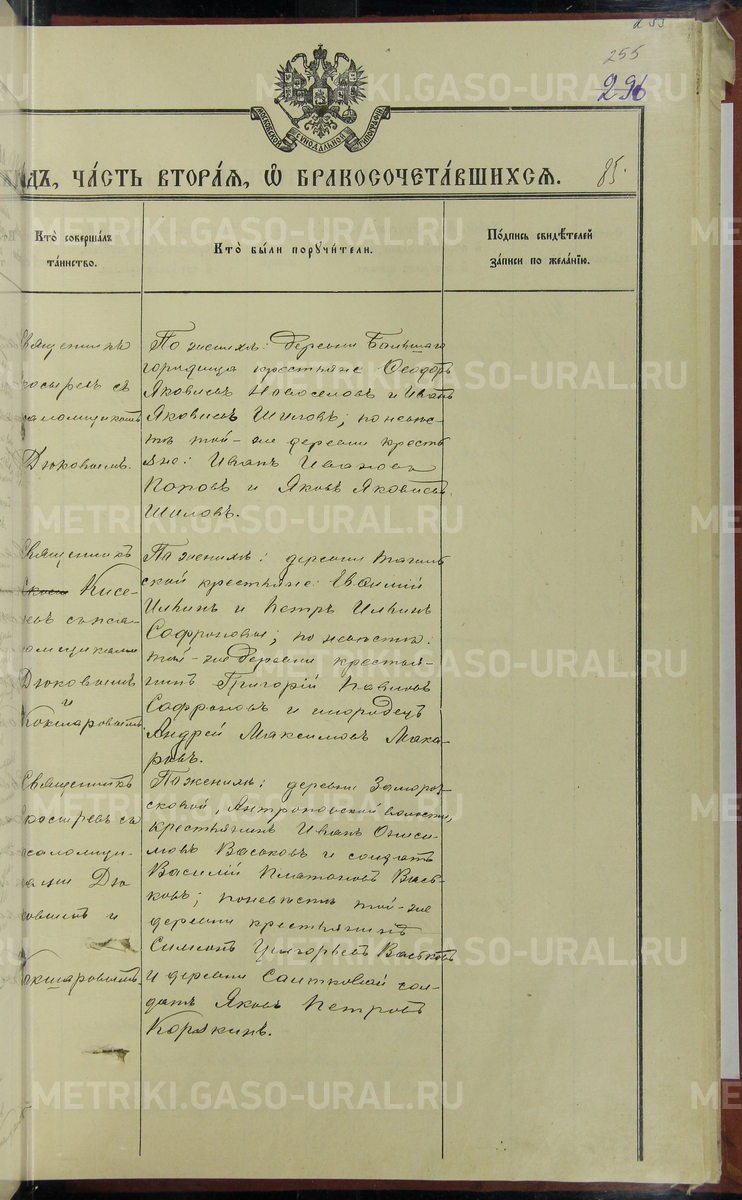 255
296
МОСКОВСКОЙ СѴНОДАЛЬНОЙ ТИПОГРАФІИ
ЧА́СТЬ ВТОРА́Ѧ, Ѽ БРАКОСОЧЕТА́ВШИХСѦ. 85.
Кто̀ соверша́лъ
та́инство.
Кто̀ бы́ли поручи́тели.
По́дпись свидѣ́телей
за́писи по жела́нїю.
вященникъ
косыревъ съ
саломщикомъ
Дюковымъ.
По женихѣ: деревни Большаго
городища крестьяне Ѳеодоръ
Яковлевъ Новоселовъ и Иванъ
Яковлевъ Шиловъ; по невѣс-
тѣ той-же деревни кресть
яне: Иванъ Ивановъ
Поповъ и Яковъ Яковлевъ
Шиловъ.
Священникъ
Кисе-
евъ съ пса-
омщиками
Дюковымъ
и
Кокшаровымъ
По женихѣ: деревни
ской крестьяне: Евсимій
Ильинъ и Петръ Ильинъ
Сафроновы; по невѣстѣ:
той-же деревни крестья-
нинъ Григорій Павловъ
Сафроновъ и инородецъ
Андрей Максимовъ Мака-
ровъ.
Священникъ
косыревъ съ
саломщи-
ками Дю
ковымъ и
окшаровымъ.
По женихѣ: деревни Замороз
сковой, Антроповской волости,
крестьянинъ Иванъ Ониси-
мовъ Васьковъ и солдатъ
Василій Платоновъ Вась-
ковъ; по невѣстѣ той-же
деревни крестьянинъ
Симеонъ Григорьевъ Васьковъ
и деревни Саитковой сол-
датъ Яковъ Петровъ
Корякинъ.
METRIKI.GASO-URAL.RU